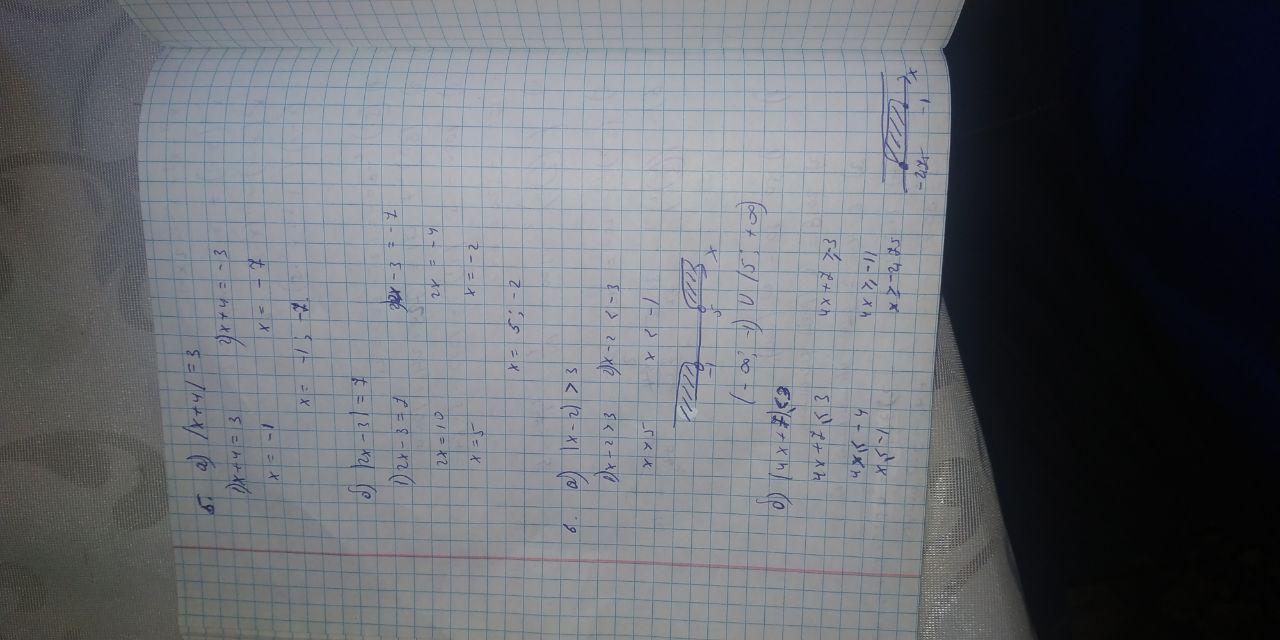 5. а) |x+4|=3
1) x+4=3 2) x+4=-3
x=-1 x=-7
x=-1; -7
б) |2x-3|=7
1) 2x-3=7 2x-3=-7
2x=10 2x=-4
x=5 x=-2
x=5; -2
6. а) |x-2|>3
1) x-2>3 2) x-2<-3
x>5 x<-1
-1 5 x
(-∞; -1) ∪ (5; +∞)
б) |4x+7|≤3
4x+7≤3 4x+7≥-3
4x≤-4 4x≥-11
x≤-1 x≥-2,75
-2,75 -1 x